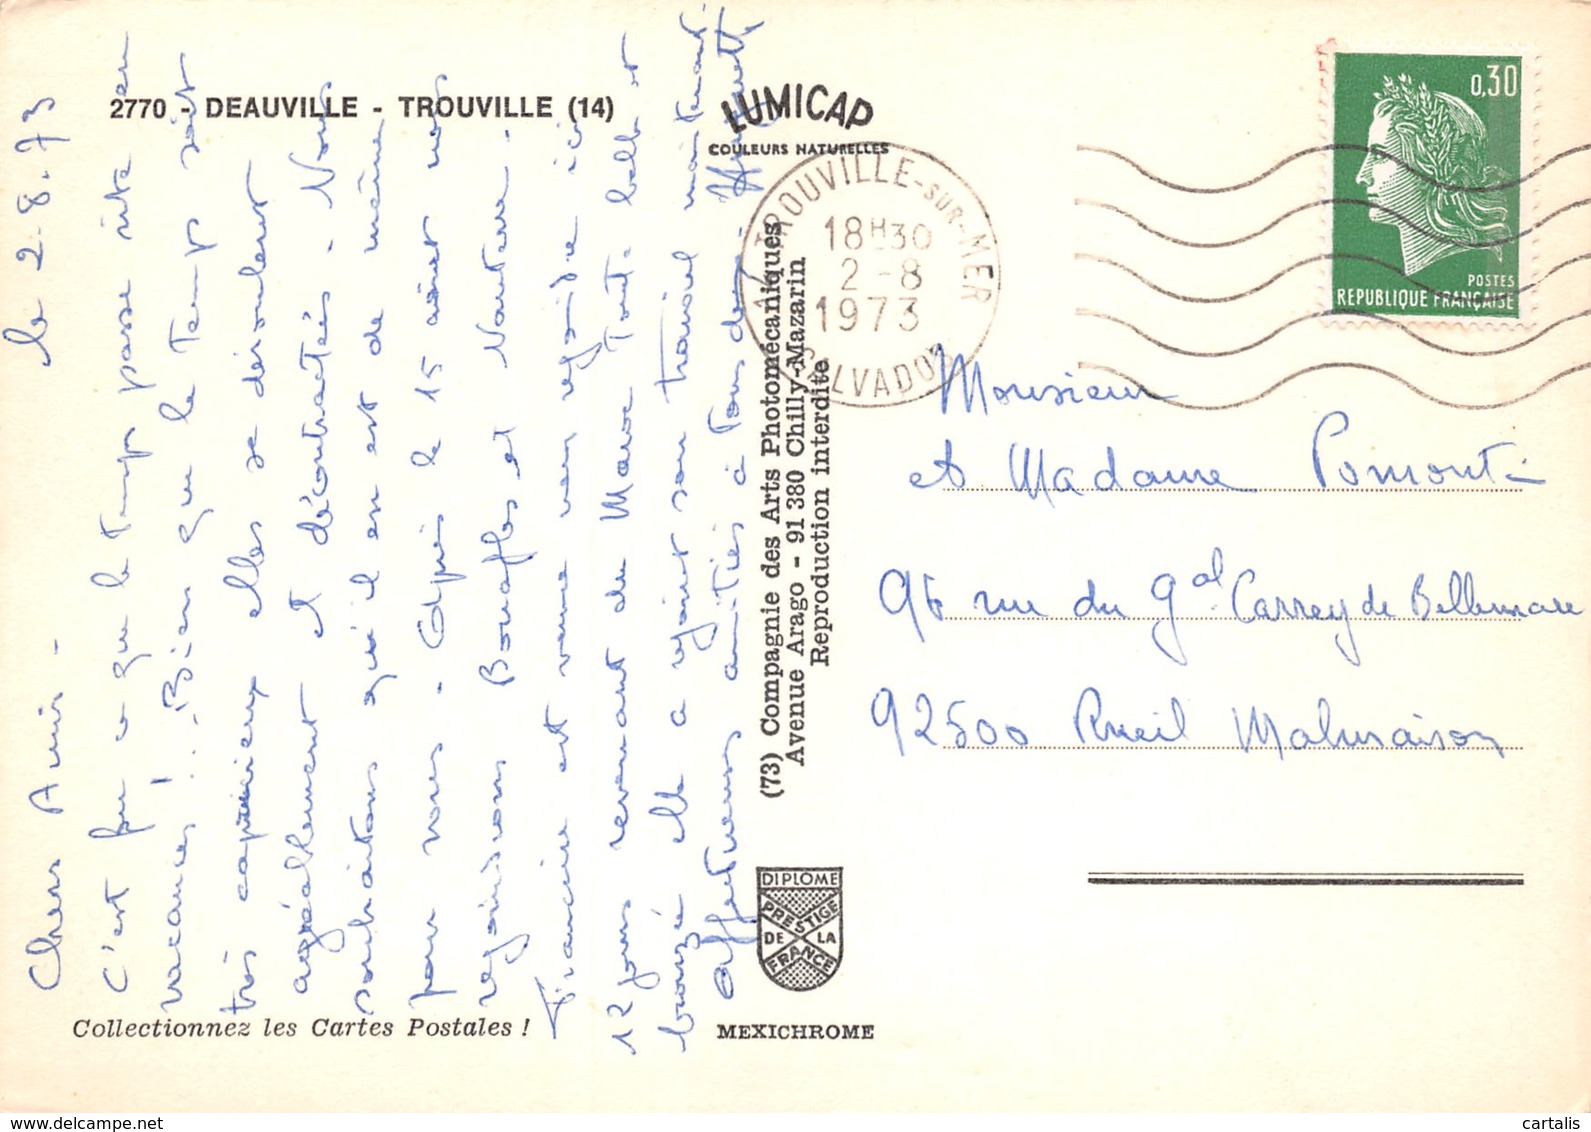 2770 - DEAUVILLE - TROUVILLE (14)
LUMICAP
COULEURS NATURELLES
TROUVILLE-SUR-MER
18H30
2-8
1973
CALVADOS
0,30
POSTES
REPUBLIQUE FRANÇAISE
le 2.8.73
Chers Amis -
C'est fou ce que le temps passe vite en
vacances ! Bien que le Temps soit
très capricieux elles se déroulent
agréablement et décontractées. Nous
souhaitons qu'il en est de même
pour vous. Après le 15 août nous
rejoindrons Bouafles et Nanterre.
Francine est venue nous rejoindre ici
12 jours revenant du Maroc Toute belle et
bronzée elle a rejoint son travail maintenant
Affectueuses amitiés à Tous deux.
Monsieur
et Madame Pomonti
96 rue du Gal Carrey de Bellemare
92500 Rueil Malmaison
(73) Compagnie des Arts Photomécaniques
Avenue Arago - 91 380 Chilly-Mazarin
Reproduction interdite
DIPLOME
PRESTIGE
DE LA
FRANCE
Collectionnez les Cartes Postales !
MEXICHROME
cartalis